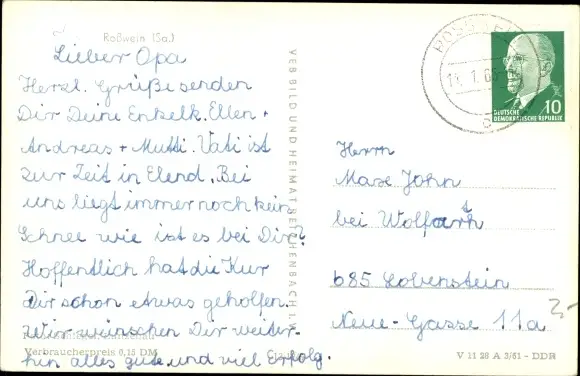 Roßwein (Sa.)
Lieber Opa
Herzl. Grüße senden
Dir Deine Enkelk. Ellen +
Andreas + Mutti. Vati ist
zur Zeit in Elend. Bei
uns liegt immer noch kein
Schnee wie ist es bei Dir?
Hoffentlich hat die Kur
Dir schon etwas geholfen.
Wir wünschen Dir weiter-
hin alles gute und viel Erfolg.
Verbraucherpreis 0,15 DM
VEB BILD UND HEIMAT REICHENBACH I. V.
14.1.65
10
DEUTSCHE
DEMOKRATISCHE REPUBLIK
Herrn
Max John
bei Wolfarth
685 Lobenstein
Neue-Gasse 11a
V 11 28 A 3/61 - DDR